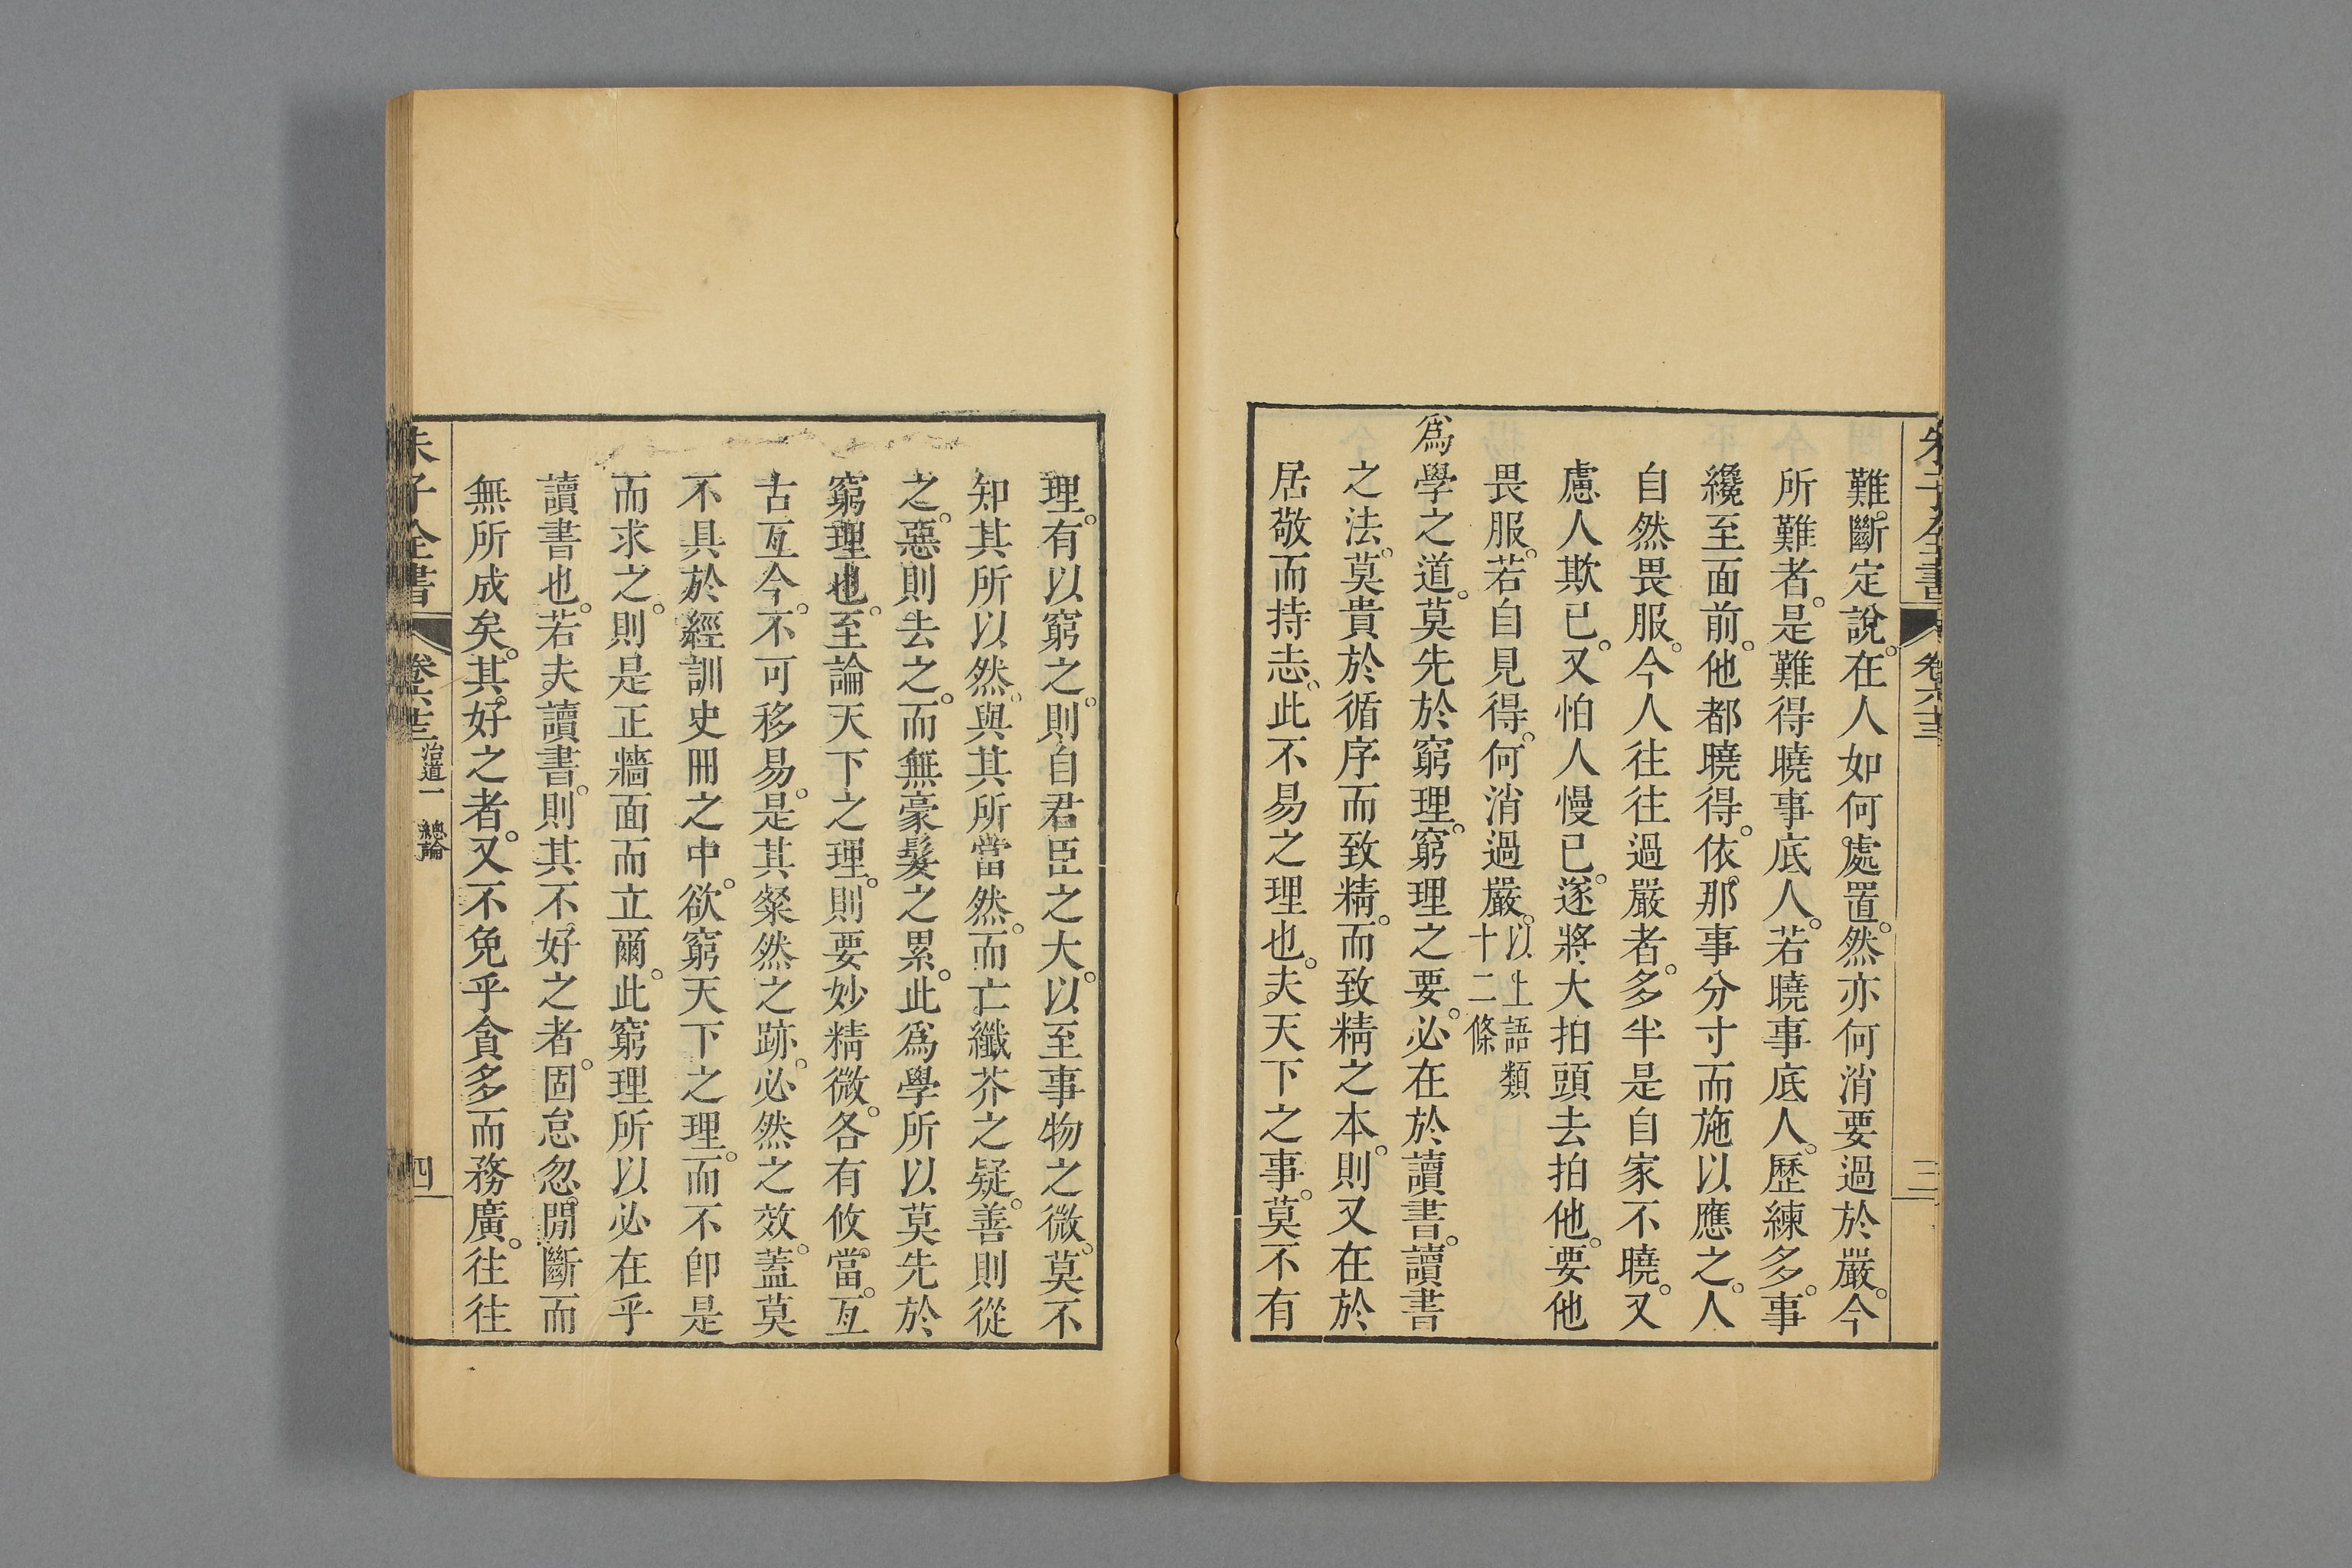 難斷定說。在人如何處置。然亦何消要過於嚴。今
所難者。是難得曉事底人。若曉事底人。歷練多。事
纔至面前。他都曉得。依那事分寸而施以應之。人
自然畏服。今人往往過嚴者。多半是自家不曉。又
慮人欺己。又怕人慢己。遂將大拍頭去拍他。要他
畏服。若自見得。何消過嚴。以上語類十二條
爲學之道。莫先於窮理。窮理之要。必在於讀書。讀書
之法。莫貴於循序而致精。而致精之本。則又在於
居敬而持志。此不易之理也。夫天下之事。莫不有
理。有以窮之。則自君臣之大。以至事物之微。莫不
知其所以然。與其所當然。而亡纖芥之疑。善則從
之。惡則去之。而無豪髮之累。此爲學所以莫先於
窮理也。至論天下之理。則要妙精微。各有攸當。亙
古亙今。不可移易。是其粲然之跡。必然之效。蓋莫
不具於經訓史冊之中。欲窮天下之理。而不卽是
而求之。則是正牆面而立爾。此窮理所以必在乎
讀書也。若夫讀書。則其不好之者。固怠忽閒斷而
無所成矣。其好之者。又不免乎貪多而務廣。往往
朱子全書 卷六十三 治道一 總論 四